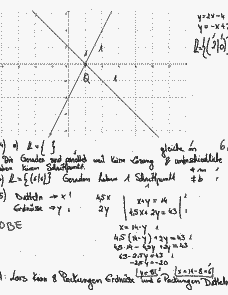 y=2x-4
y=-x+2
L={(2|0)}
Q
4) a) L={ }
gleiche m
Die Geraden sind parallel und keine Lösung & unterschiedliche
haben keinen Schnittpunkt
b) L={(6|6)} Geraden haben 1 Schnittpunkt
≠ b
5) Datteln → x
4,5x
x+y=14
Erdnüsse → y
2y
4,5x+2y=43
OBE
x=14-y
4,5(14-y)+2y=43
63-2,5y=43
-2,5y=-20
y=8
x=14-8=6
A: Lars kann 8 Packungen Erdnüsse und 6 Packungen Datteln